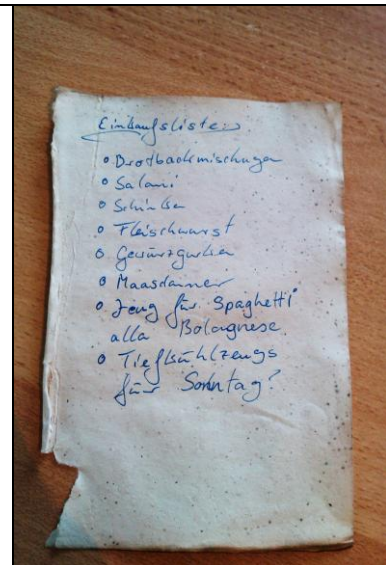 Einkaufsliste:
• Brotbackmischungen
• Salami
• Schinken
• Fleischwurst
• Gewürzgurken
• Maasdamer
• Zeug für Spaghetti
alla Bolognese
• Tiefkühlzeugs
für Sonntag?